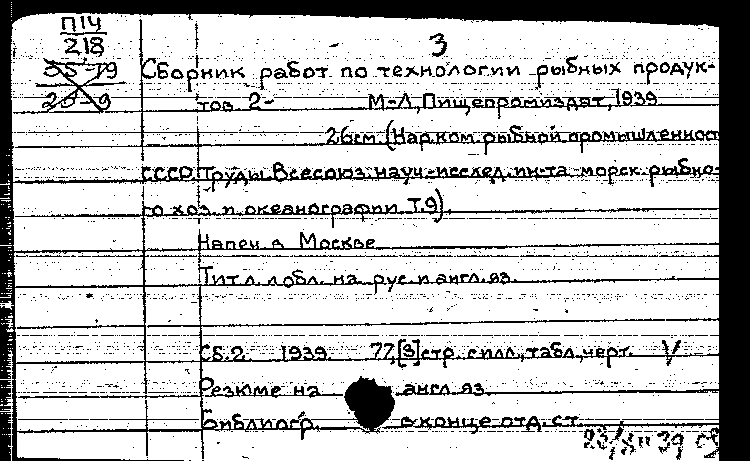 П14
218
3
55-19
Сборник работ по технологии рыбных продук-
25-9
тов 2- М-Л, Пищепромиздат, 1939
26см. (Нар.ком. рыбной промышленност
СССР. Труды Всесоюз. науч-исслед. ин-та морск. рыбно-
го хоз. и океанографии Т.9).
Напеч в Москве
Тит л. и обл. на рус. и англ. яз.
Сб. 2. 1939. 77,[3] стр. с илл., табл., черт. V
Резюме на англ яз.
Библиогр. в конце отд. ст.
39